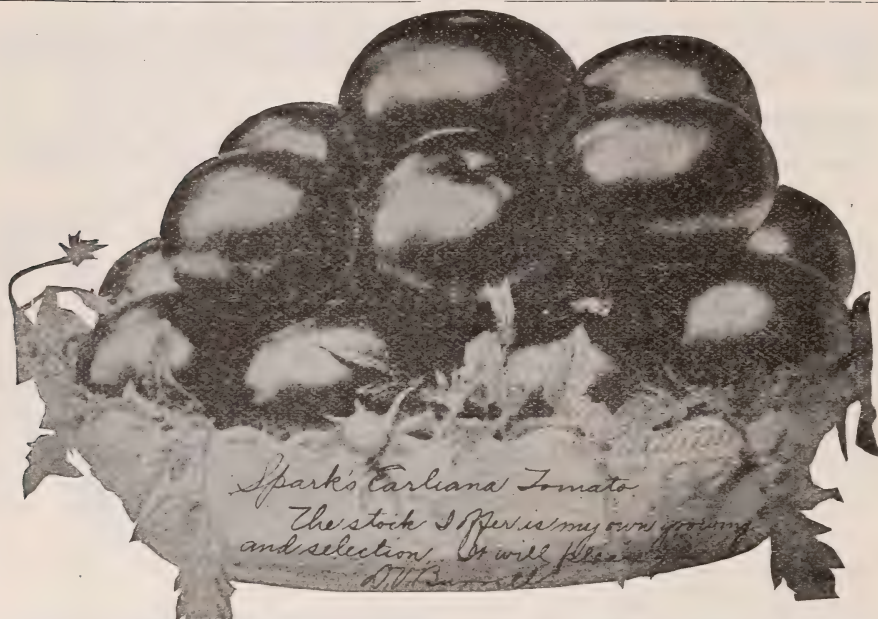 Spark's Earliana Tomato
The stock I offer is my own growing
and selection. It will please
D.V. Burrell